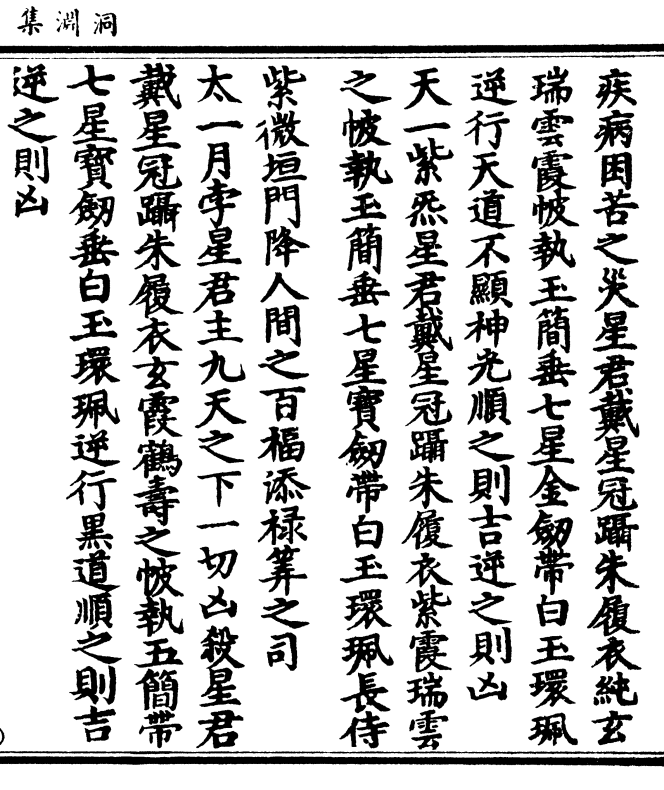 洞淵集
疾病困苦之災星君戴星冠躡朱履衣純玄
瑞雲霞帔執玉簡垂七星金劒帶白玉環珮
逆行天道不顯神光順之則吉逆之則凶
天一紫炁星君戴星冠躡朱履衣紫霞瑞雲
之帔執玉簡垂七星寶劒帶白玉環珮長侍
紫微垣門降人間之百福添祿筭之司
太一月孛星君主九天之下一切凶殺星君
戴星冠躡朱履衣玄霞鶴壽之帔執五簡帶
七星寶劒垂白玉環珮逆行黑道順之則吉
逆之則凶